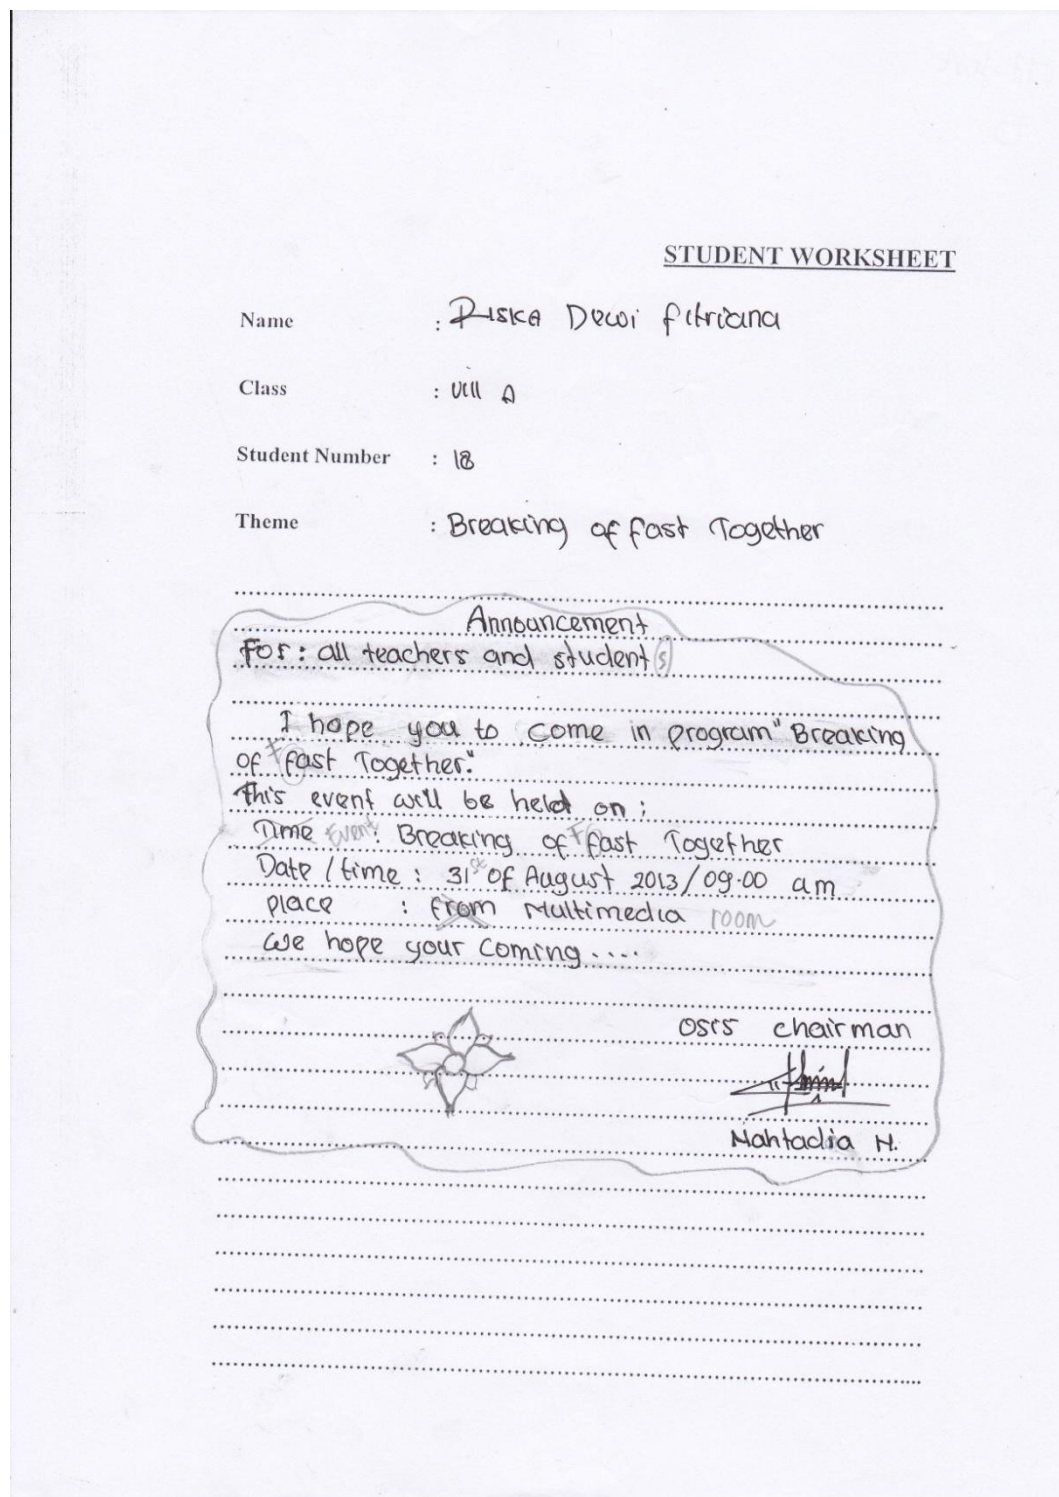 STUDENT WORKSHEET
Name : Riska Dewi fitriana
Class : VIII A
Student Number : 18
Theme : Breaking of fast Together
Announcement
For : all teachers and student s
I hope you to come in program "Breaking
of F fast Together."
This event will be held on :
Time Event : Breaking of F fast Together
Date / time : 31 st of August 2013 / 09.00 am
place : from Multimedia room
We hope your coming ....
OSIS chairman
Mahtadia H.